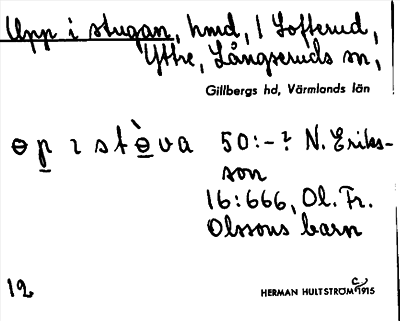 Upp i stugan, hmd, 1 Sofferud,
Yttre, Långseruds sn,
Gillbergs hd, Värmlands län
ɵp ɩ stɵ̀va 50:-? N. Eriks-
son
16:666, Ol. Fr.
Olssons barn
12 HERMAN HULTSTRÖM C:a 1915